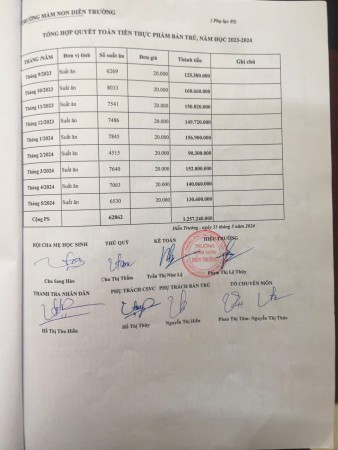 TRƯỜNG MẦM NON DIÊN TRƯỜNG
( Phụ lục 05)
TỔNG HỢP QUYẾT TOÁN TIỀN THỰC PHẨM BÁN TRÚ, NĂM HỌC 2023-2024
THÁNG NĂM Đơn vị tính Số suất ăn Đơn giá Thành tiền Ghi chú
Tháng 9/2023 Suất ăn 6269 20.000 125.380.000
Tháng 10/2023 Suất ăn 8033 20.000 160.660.000
Tháng 11/2023 Suất ăn 7541 20.000 150.820.000
Tháng 12/2023 Suất ăn 7486 20.000 149.720.000
Tháng 1/2024 Suất ăn 7845 20.000 156.900.000
Tháng 2/2024 Suất ăn 4515 20.000 90.300.000
Tháng 3/2024 Suất ăn 7640 20.000 152.800.000
Tháng 4/2024 Suất ăn 7003 20.000 140.060.000
Tháng 5/2024 Suất ăn 6530 20.000 130.600.000
Cộng PS 62862 1.257.240.000
Diên Trường, ngày 31 tháng 5 năm 2024
HỘI CHA MẸ HỌC SINH THỦ QUỸ KẾ TOÁN HIỆU TRƯỞNG
Chu Sang Hào Chu Thị Thắm Trần Thị Như Lệ Phạm Thị Lệ Thủy
THANH TRA NHÂN DÂN PHỤ TRÁCH CSVC PHỤ TRÁCH BÁN TRÚ TỔ CHUYÊN MÔN
Hồ Thị Thu Hiền Hồ Thị Thủy Nguyễn Thị Hiền Phan Thị Tâm Nguyễn Thị Thảo